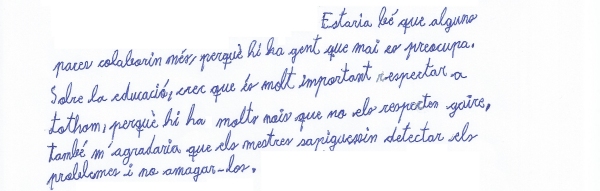 Estaria bé que alguns
pares colaborin més, perquè hi ha gent que mai es preocupa.
Sobre la educació, crec que és molt important respectar a
tothom, perquè hi ha molts nois que no els respecten gaire,
també m'agradaria que els mestres sapiguessin detectar els
problemes i no amagar-los.